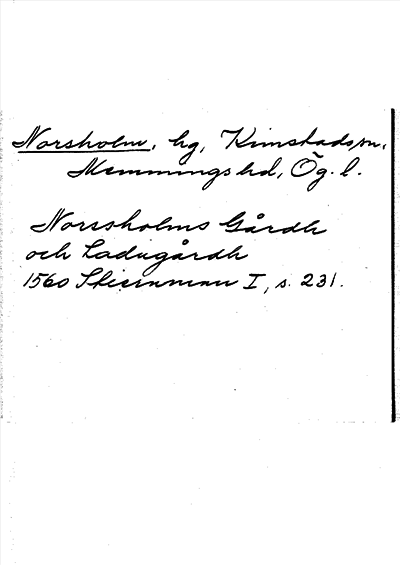 Norsholm, hg, Kimstads sn,
Memmings hd, Ög. l.
Norssholms Gårdh
och Ladugårdh
1560 Stiernman I, s. 231.